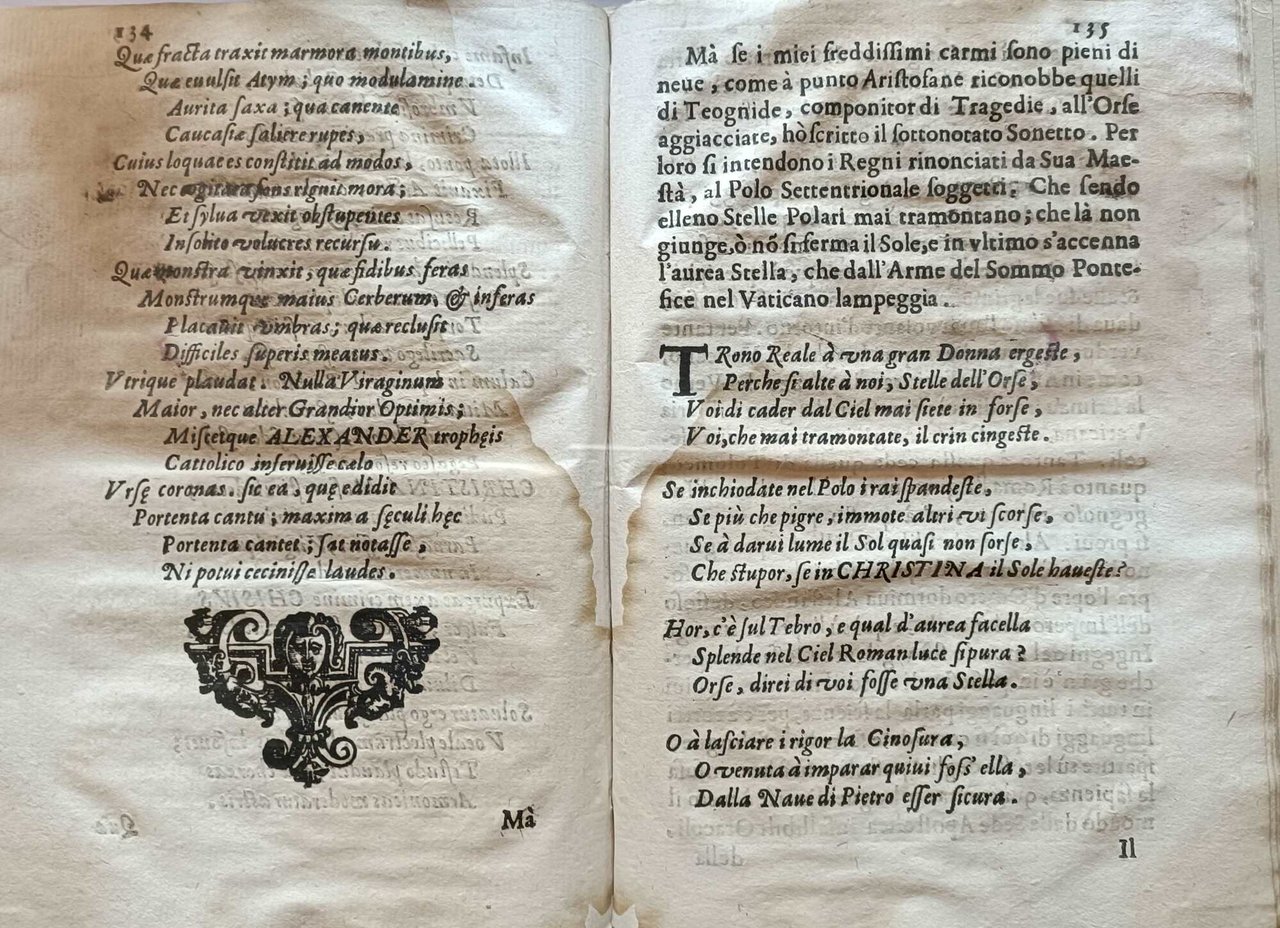 134
Quæ fracta traxit marmora montibus,
Quæ euulsit Atym; quo modulamine
Aurita saxa; qua canente
Caucasiæ saliere rupes,
Cuius loquaces constitit ad modos,
Nec mora;
Et sylua vixit obstupentes
Insolito volucres recursu.
Quæ monstra vinxit; quæ fidibus feras
Monstrumque maius Cerberum, & inferas
Placauit vmbras; quæ reclusit
Difficiles superis meatus.
Vtrique plaudat. Nulla Viraginum
Maior, nec alter Grandior Optimis;
Miscetque ALEXANDER trophęis
Cattolico inseruisse cælo
Vrsę coronas. sic ea, quę edidit
Portenta cantu; maxima sęculi hęc
Portenta cantet; sat notasse,
Ni potui cecinisse laudes.
Mà
135
Mà se i miei freddissimi carmi sono pieni di
neue, come à punto Aristofane riconobbe quelli
di Teognide, componitor di Tragedie, all'Orse
aggiacciate, hò scritto il sottonotato Sonetto. Per
loro si intendono i Regni rinonciati da Sua Mae-
stà, al Polo Settentrionale soggetti; Che sendo
elleno Stelle Polari mai tramontano; che là non
giunge, ò nõ si ferma il Sole, e in vltimo s'accenna
l'aurea Stella, che dall'Arme del Sommo Ponte-
fice nel Vaticano lampeggia.
TRono Reale à vna gran Donna ergeste,
Perche sì alte à noi, Stelle dell'Orse,
Voi di cader dal Ciel mai siete in forse,
Voi, che mai tramontate, il crin cingeste.
Se inchiodate nel Polo i rai spandeste,
Se più che pigre, immote altri vi scorse,
Se à darui lume il Sol quasi non sorse,
Che stupor, se in CHRISTINA il Sole haueste?
Hor, c'è sul Tebro, e qual d'aurea facella
Splende nel Ciel Roman luce sì pura?
Orse, direi di voi fosse vna Stella.
O à lasciare i rigor la Cinosura,
O venuta à imparar quiui foss' ella,
Dalla Naue di Pietro esser sicura.
Il